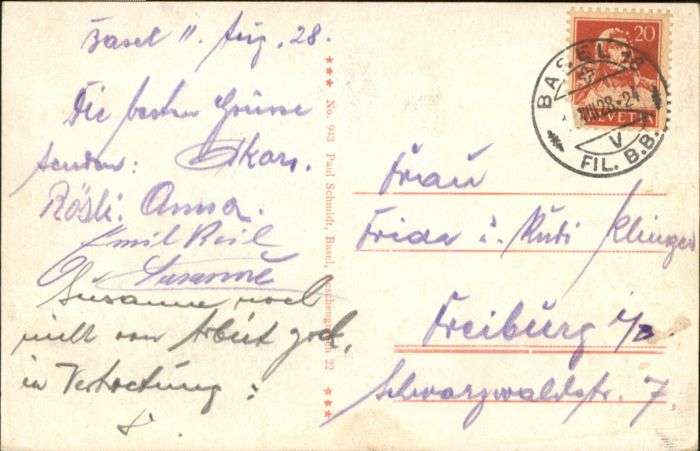 Basel 11. Aug. 28.
Die besten Grüsse
senden: Oskar.
Rösli. Anna.
Emil
Susanne
Susanne noch
nicht von Arbeit zck.
in Vertretung:
No. 943 Paul Schmidt, Basel, 22
20
HELVETIA
BASEL
VIII 28-24
V
FIL. B.B.
Frau
Frida u. Rudi Klinger
Freiburg i/B
Schwarzwaldstr. 7.